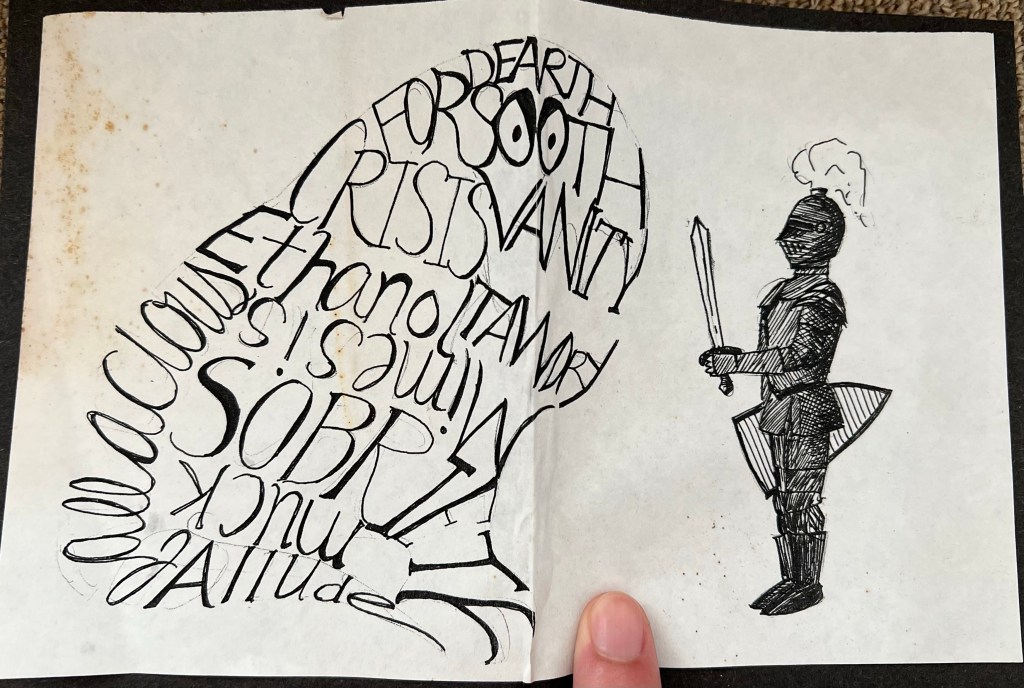 DEARTH
FORSOOTH
CRISIS
VANITY
Ethanol
TAWDRY
fallacious
Mimesis
SOBRIETY
muck